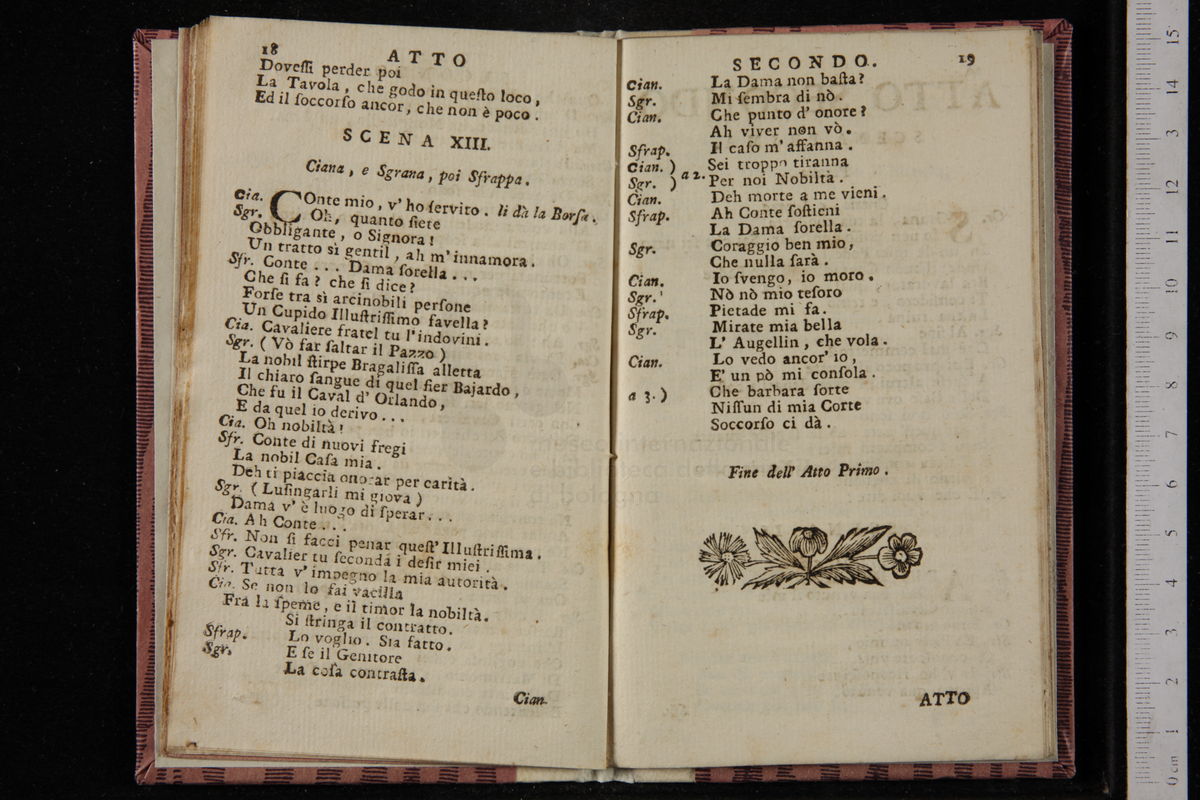 18 ATTO
Dovessi perder poi
La Tavola, che godo in questo loco,
Ed il soccorso ancor, che non è poco.
SCENA XIII.
Ciana, e Sgrana, poi Sfrappa.
Cia. COnte mio, v' ho servito. li dà la Borsa.
Sgr. Oh, quanto siete
Obbligante, o Signora!
Un tratto sì gentil, ah m' innamora.
Sfr. Conte ... Dama sorella ...
Che si fa? che si dice?
Forse tra sì arcinobili persone
Un Cupido Illustrissimo favella?
Cia. Cavaliere fratel tu l' indovini.
Sgr. (Vò far saltar il Pazzo)
La nobil stirpe Bragalissa alletta
Il chiaro sangue di quel fier Bajardo,
Che fu il Caval d' Orlando,
E da quel io derivo ...
Cia. Oh nobiltà!
Sfr. Conte di nuovi fregi
La nobil Casa mia.
Deh ti piaccia onorar per carità.
Sgr. (Lusingarli mi giova)
Dama v' è luogo di sperar ...
Cia. Ah Conte ...
Sfr. Non si facci penar quest' Illustrissima.
Sgr. Cavalier tu seconda i desir miei.
Sfr. Tutta v' impegno la mia autorità.
Cia. Se non lo fai vacilla
Fra la speme, e il timor la nobiltà.
Si stringa il contratto.
Sfrap. Lo voglio. Sia fatto.
Sgr. E se il Genitore
La cosa contrasta.
Cian.
SECONDO. 19
Cian. La Dama non basta?
Sgr. Mi sembra di nò.
Cian. Che punto d' onore?
Ah viver non vò.
Sfrap. Il caso m' affanna.
Cian. ) Sei troppo tiranna
Sgr. ) a 2. Per noi Nobiltà.
Cian. Deh morte a me vieni.
Sfrap. Ah Conte sostieni
La Dama sorella.
Sgr. Coraggio ben mio,
Che nulla sarà.
Cian. Io svengo, io moro.
Sgr. Nò nò mio tesoro
Sfrap. Pietade mi fa.
Sgr. Mirate mia bella
L' Augellin, che vola.
Cian. Lo vedo ancor' io,
E' un pò mi consola.
a 3. ) Che barbara sorte
Nissun di mia Corte
Soccorso ci dà.
Fine dell' Atto Primo.
ATTO
museo internazionale
e biblioteca della
di bologna
15
14
13
12
11
10
9
8
7
6
5
4
3
2
1
0 cm